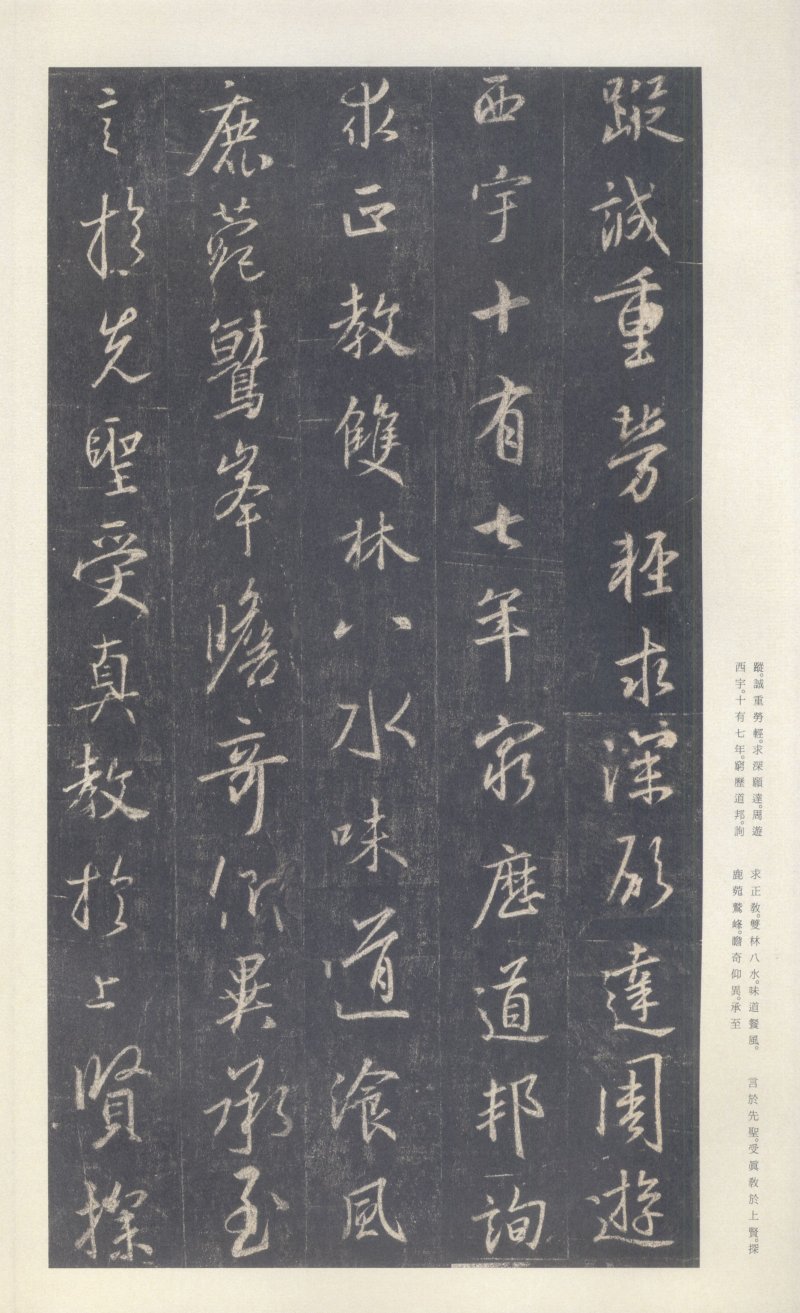 蹤誠重勞輕求深願達周遊
西宇十有七年窮歷道邦詢
求正教雙林八水味道飡風
鹿菀鷲峯瞻奇仰異承至
言於先聖受真教於上賢探
蹤。誠重勞輕。求深願達。周遊
西宇。十有七年。窮歷道邦。詢
求正教。雙林八水。味道餐風。
鹿菀鷲峰。瞻奇仰異。承至
言於先聖。受眞教於上賢。探